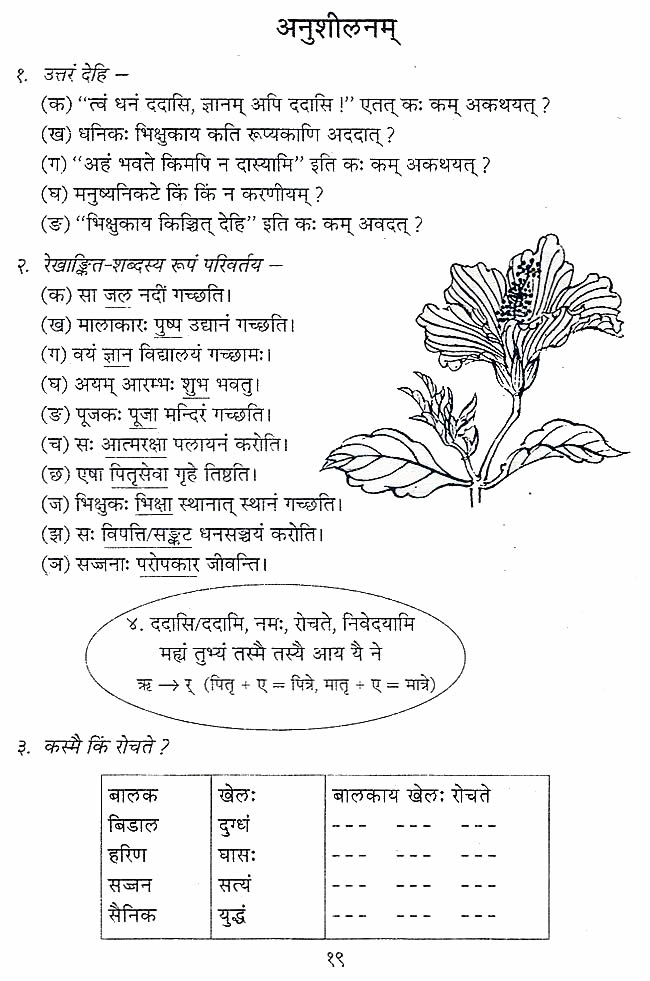 अनुशीलनम्
१. उत्तरं देहि –
(क) “त्वं धनं ददासि, ज्ञानम् अपि ददासि !” एतत् कः कम् अकथयत् ?
(ख) धनिकः भिक्षुकाय कति रूप्यकाणि अददात् ?
(ग) “अहं भवते किमपि न दास्यामि” इति कः कम् अकथयत् ?
(घ) मनुष्यनिकटे किं किं न करणीयम् ?
(ङ) “भिक्षुकाय किञ्चित् देहि” इति कः कम् अवदत् ?
२. रेखाङ्कित-शब्दस्य रूपं परिवर्तय –
(क) सा जल नदीं गच्छति।
(ख) मालाकारः पुष्प उद्यानं गच्छति।
(ग) वयं ज्ञान विद्यालयं गच्छामः।
(घ) अयम् आरम्भः शुभ भवतु।
(ङ) पूजकः पूजा मन्दिरं गच्छति।
(च) सः आत्मरक्षा पलायनं करोति।
(छ) एषा पितृसेवा गृहे तिष्ठति।
(ज) भिक्षुकः भिक्षा स्थानात् स्थानं गच्छति।
(झ) सः विपत्ति/सङ्कट धनसञ्चयं करोति।
(ञ) सज्जनाः परोपकार जीवन्ति।
४. ददासि/ददामि, नमः, रोचते, निवेदयामि
मह्यं तुभ्यं तस्मै तस्यै आय यै ने
ऋ → र् (पितृ + ए = पित्रे, मातृ + ए = मात्रे)
३. कस्मै किं रोचते ?
बालक खेलः बालकाय खेलः रोचते
बिडाल दुग्धं --- --- ---
हरिण घासः --- --- ---
सज्जन सत्यं --- --- ---
सैनिक युद्धं --- --- ---
१९